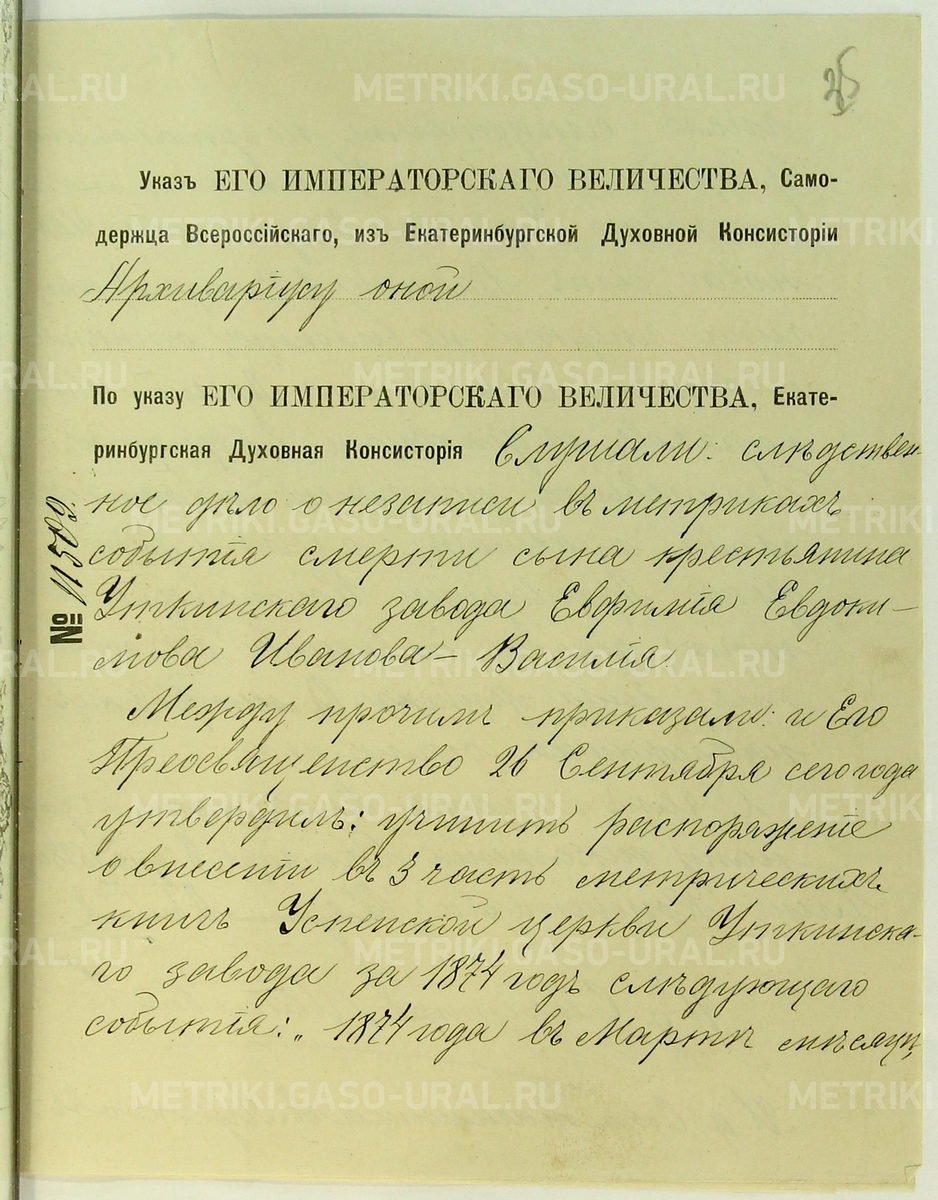 25
Указъ ЕГО ИМПЕРАТОРСКАГО ВЕЛИЧЕСТВА, Само-
держца Всероссійскаго, изъ Екатеринбургской Духовной Консисторіи
Архиваріусу оной
По указу ЕГО ИМПЕРАТОРСКАГО ВЕЛИЧЕСТВА, Екате-
ринбургская Духовная Консисторія Слушали: слѣдствен-
ное дѣло о незаписи въ метрикахъ
событія смерти сына крестьянина
Уткинскаго завода Евфимія Евдоки-
мова Иванова – Василія.
№ 11509.
Между прочимъ приказали: и Его
Преосвященство 26 Сентября сего года
утвердилъ: учинить распоряженіе
о внесеніи въ 3 часть метрическихъ
книгъ Успенской церкви Уткинска-
го завода за 1874 годъ слѣдующаго
событія: „1874 года въ Мартѣ мѣсяцѣ,
METRIKI.GASO-URAL.RU